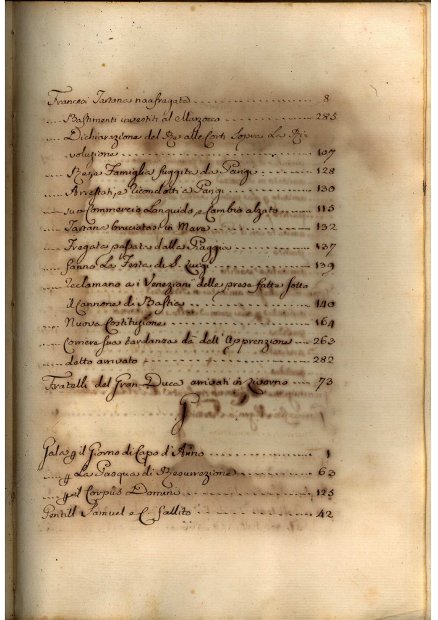 Francesi Tartana naufragata 8
Bastimenti investiti al Marzocco 285
Dichiarazione del Re alle Corti sopra La Ri
voluzione 107
Regia Famiglia fuggita da Parigi 128
Arrestati, e ricondotti a Parigi 130
suo Commercio Languido, e Cambio alzato 115
Tartana bruciata in Mare 132
Fregata passata dalle Piaggie 137
fanno La Festa di S. Luigi 139
reclamano a i Veneziani delle prese fatte sotto
il Cannone di Bastia 140
Nuova Costituzione 164
Corriere sua tardanza dà dell'Apprenzione 263
detto arrivato 282
Fratelli del Gran Duca arrivati in Livorno 73
G
Gala p il Giorno di Capo d'Anno 1
p La Pasqua di Resurrezione 63
p il Corpus Domini 125
Gentill Samuel e C. fallito 42